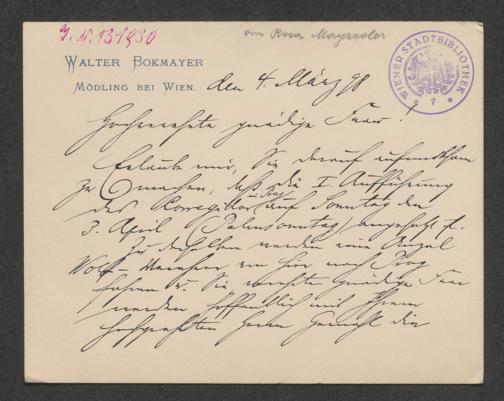 J.N. 131980
an Rosa Mayreder
WALTER BOKMAYER
MÖDLING BEI WIEN.
den 4. März 98
WIENER STADTBIBLIOTHEK
* 7 *
Hochverehrte gnädige Frau!
Erlaube mir, Sie darauf aufmerksam
zu machen, daß die I. Aufführung
des Corregidor in Prag auf Sonntag den
3. April (Palmsonntag) angesetzt ist.
Zu derselben werden eine Anzahl
Wolf-Verehrer von hier nach Prag
fahren u. Sie, verehrte gnädige Frau
werden hoffentlich mit Ihrem
hochgeehrten Herrn Gemahl die